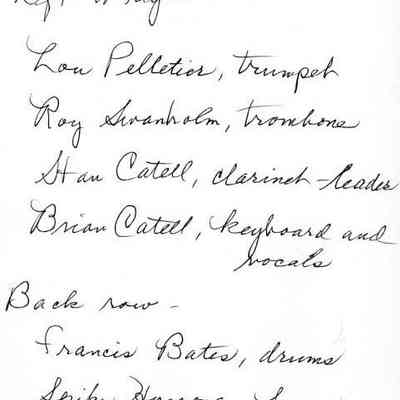 Lou Pelletier, trumpet
Roy Swanholm, trombone
Stan Catell, clarinet - leader
Brian Catell, keyboard and
vocals
Back row -
Francis Bates, drums